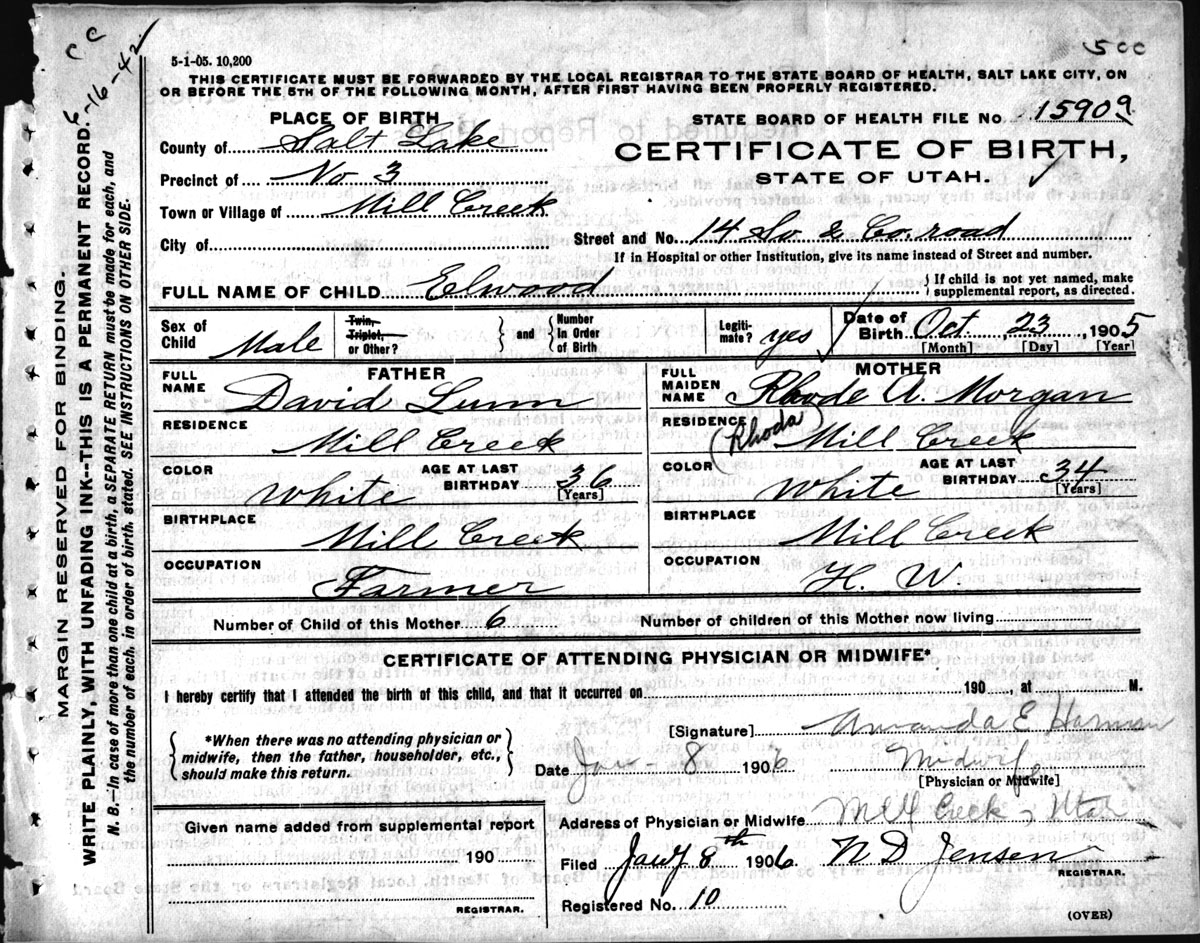 c c
5-16-42
5 c c
5-1-05. 10,200
THIS CERTIFICATE MUST BE FORWARDED BY THE LOCAL REGISTRAR TO THE STATE BOARD OF HEALTH, SALT LAKE CITY, ON
OR BEFORE THE 5TH OF THE FOLLOWING MONTH, AFTER FIRST HAVING BEEN PROPERLY REGISTERED.
PLACE OF BIRTH
STATE BOARD OF HEALTH FILE No. 15909
County of Salt Lake
CERTIFICATE OF BIRTH,
Precinct of No 3
STATE OF UTAH.
Town or Village of Mill Creek
City of
Street and No. 14 So & Co. road
If in Hospital or other Institution, give its name instead of Street and number.
FULL NAME OF CHILD Elwood } If child is not yet named, make
supplemental report, as directed.
Sex of Child Male
Twin, Triplet, or Other? } and { Number In Order of Birth
Legiti-mate? yes
Date of Birth Oct 23, 1905
[Month] [Day] [Year]
FATHER
MOTHER
FULL NAME David Lunn
FULL MAIDEN NAME Rhode A. Morgan
(Rhoda)
RESIDENCE Mill Creek
RESIDENCE Mill Creek
COLOR White AGE AT LAST BIRTHDAY 36 [Years]
COLOR White AGE AT LAST BIRTHDAY 34 [Years]
BIRTHPLACE Mill Creek
BIRTHPLACE Mill Creek
OCCUPATION Farmer
OCCUPATION H. W
Number of Child of this Mother 6
Number of children of this Mother now living
CERTIFICATE OF ATTENDING PHYSICIAN OR MIDWIFE*
I hereby certify that I attended the birth of this child, and that it occurred on 190 , at M.
{ *When there was no attending physician or
midwife, then the father, householder, etc.,
should make this return. }
[Signature] Amanda E Harman
Date Jan - 8 1906 Midwife
[Physician or Midwife]
Address of Physician or Midwife Mill Creek, Utah
Given name added from supplemental report
190
REGISTRAR.
Filed Jany 8th 1906 N D Jensen
REGISTRAR.
Registered No. 10
(OVER)
MARGIN RESERVED FOR BINDING.
WRITE PLAINLY, WITH UNFADING INK--THIS IS A PERMANENT RECORD.
N. B.—In case of more than one child at a birth, a SEPARATE RETURN must be made for each, and
the number of each, in order of birth, stated. SEE INSTRUCTIONS ON OTHER SIDE.